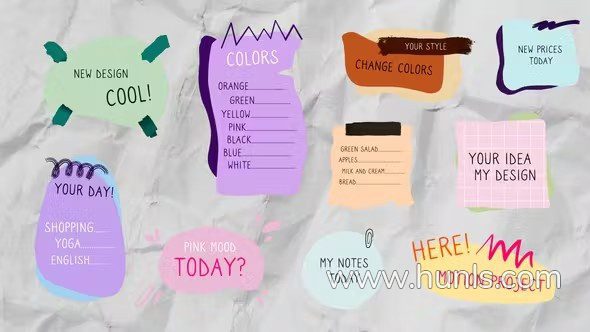 NEW DESIGN
COOL!
COLORS
ORANGE
GREEN
YELLOW
PINK
BLACK
BLUE
WHITE
YOUR STYLE
CHANGE COLORS
NEW PRICES
TODAY
GREEN SALAD
APPLES
MILK AND CREAM
BREAD
YOUR IDEA
MY DESIGN
YOUR DAY!
SHOPPING
YOGA
ENGLISH
PINK MOOD
TODAY?
MY NOTES
TODAY
HERE!
MOTION PROJECT
www.hunls.com